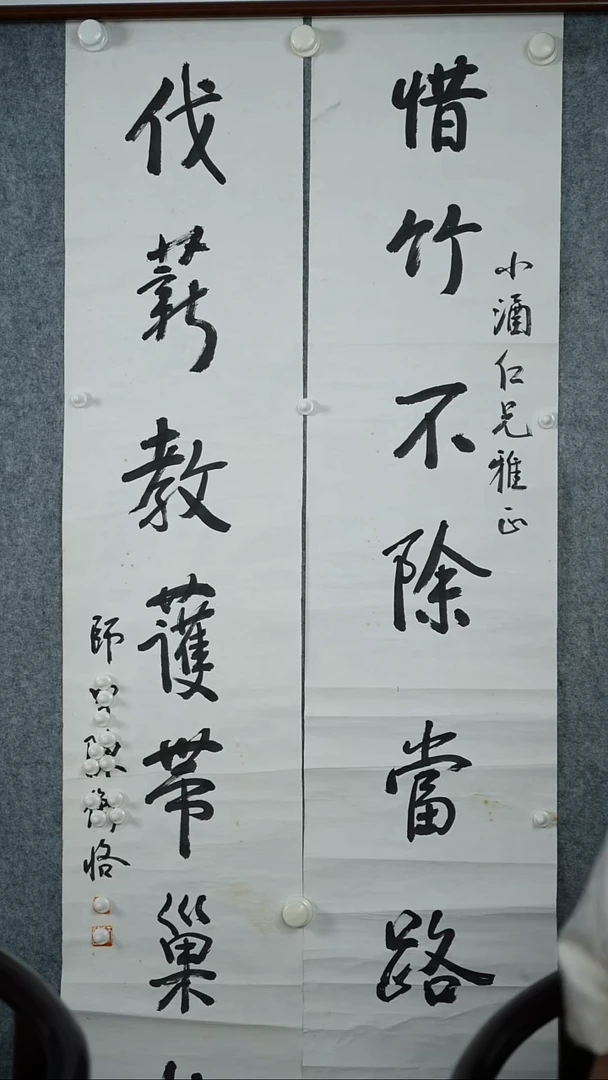 惜竹不除當路
小酒仁兄雅正
伐薪教護帶巢
師 陳衡恪